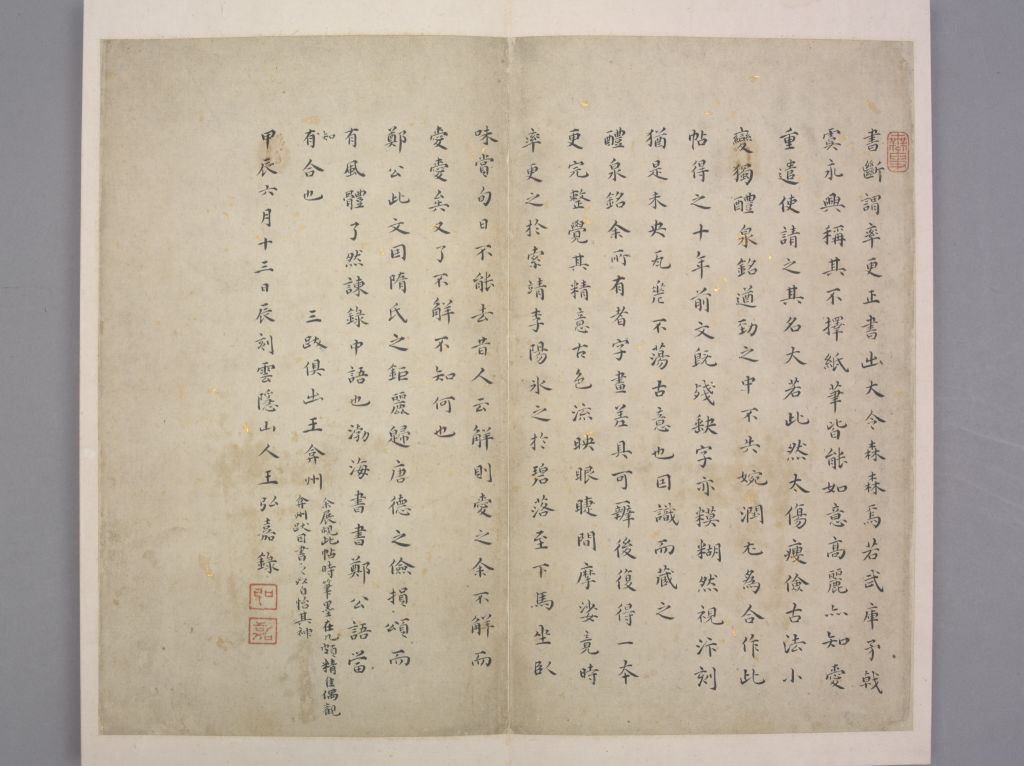 書斷謂率更正書出大令森森焉若武庫矛戟
虞永興稱其不擇紙筆皆能如意高麗亦知愛
重遣使請之其名大若此然太傷瘦儉古法小
變獨醴泉銘遒勁之中不失婉潤尤為合作此
帖得之十年前文既殘缺字亦糢糊然視汴刻
猶是未央瓦甍不蕩古意也因識而藏之
醴泉銘余所有者字畫差具可辨後復得一本
更完整覺其精意古色流映眼睫間摩娑竟時
率更之於索靖李陽氷之於碧落至下馬坐臥
味賞旬日不能去昔人云解則愛之余不解而
愛愛矣又了不解不知何也
鄭公此文因隋氏之鉅麗歸唐德之儉損頌而
有風體了然諫錄中語也渤海書書鄭公語當
知
有合也　三跋俱出王弇州
余展硯此帖時筆墨在几頗精佳偶觀
弇州跋因書之以自怡其神
甲辰六月十三日辰刻雲隱山人王弘嘉錄
弘
嘉